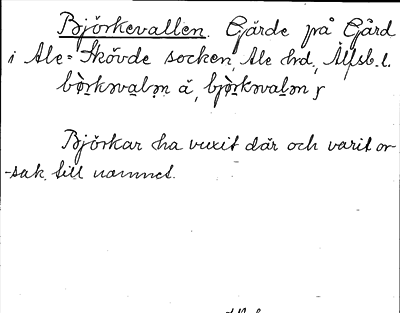 Björkevallen. Gärde på Gård
i Ale-Skövde socken, Ale hrd., Älfsb. l.
Björkar ha vuxit där och varit or-
-sak till namnet.